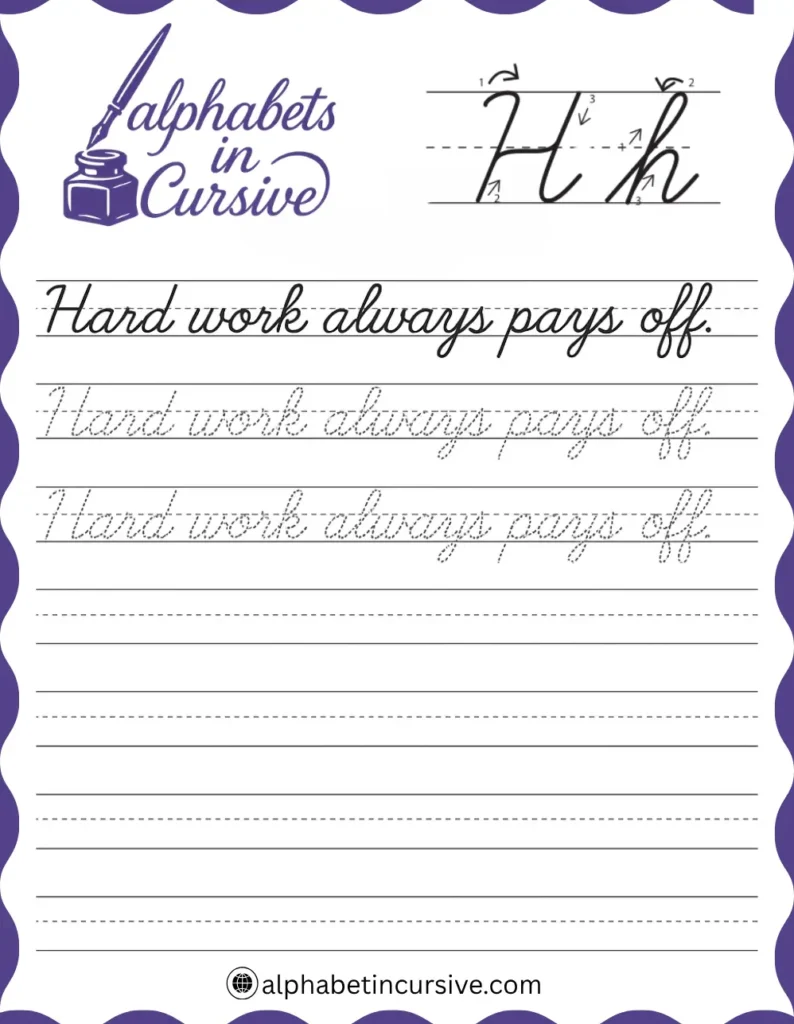 alphabets
in
Cursive
1 2 3 2 3
H h
Hard work always pays off.
Hard work always pays off.
Hard work always pays off.
alphabetincursive.com